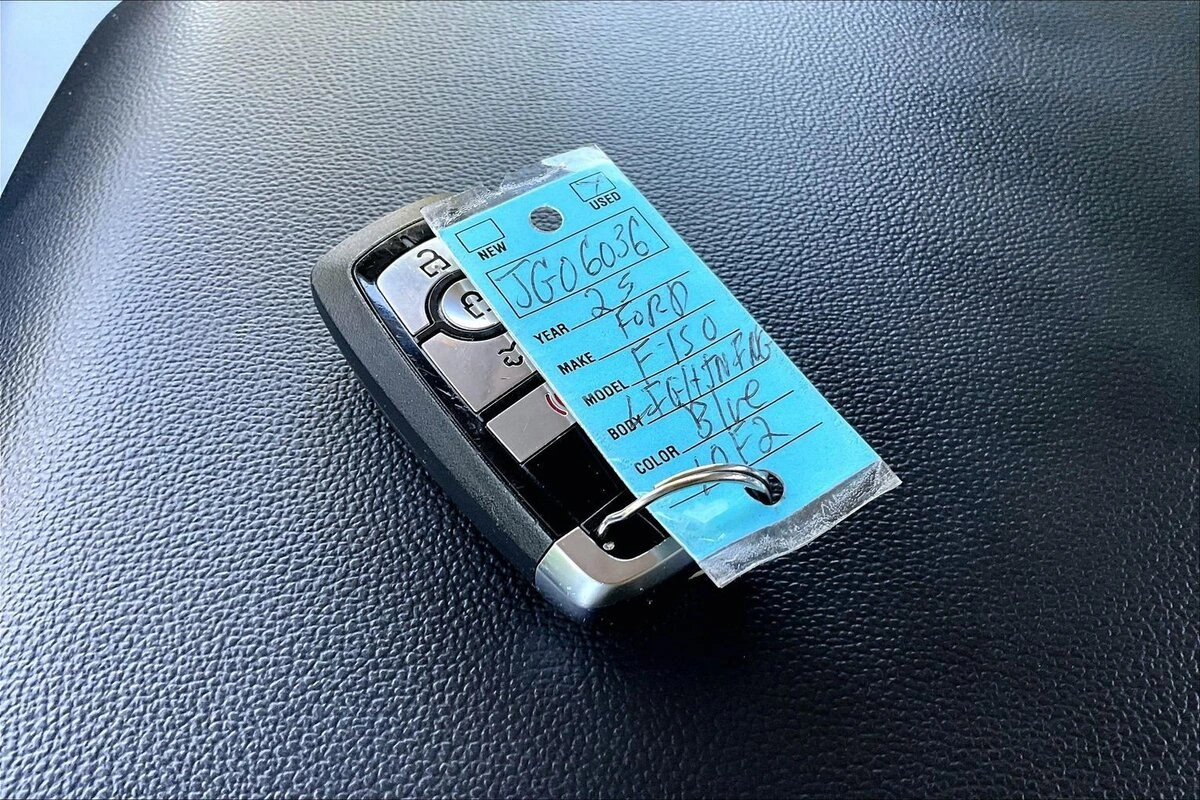 NEW USED
JG06036
YEAR 25
MAKE FORD
MODEL F-150
BODY LIGHTNING
COLOR Blue
10F2